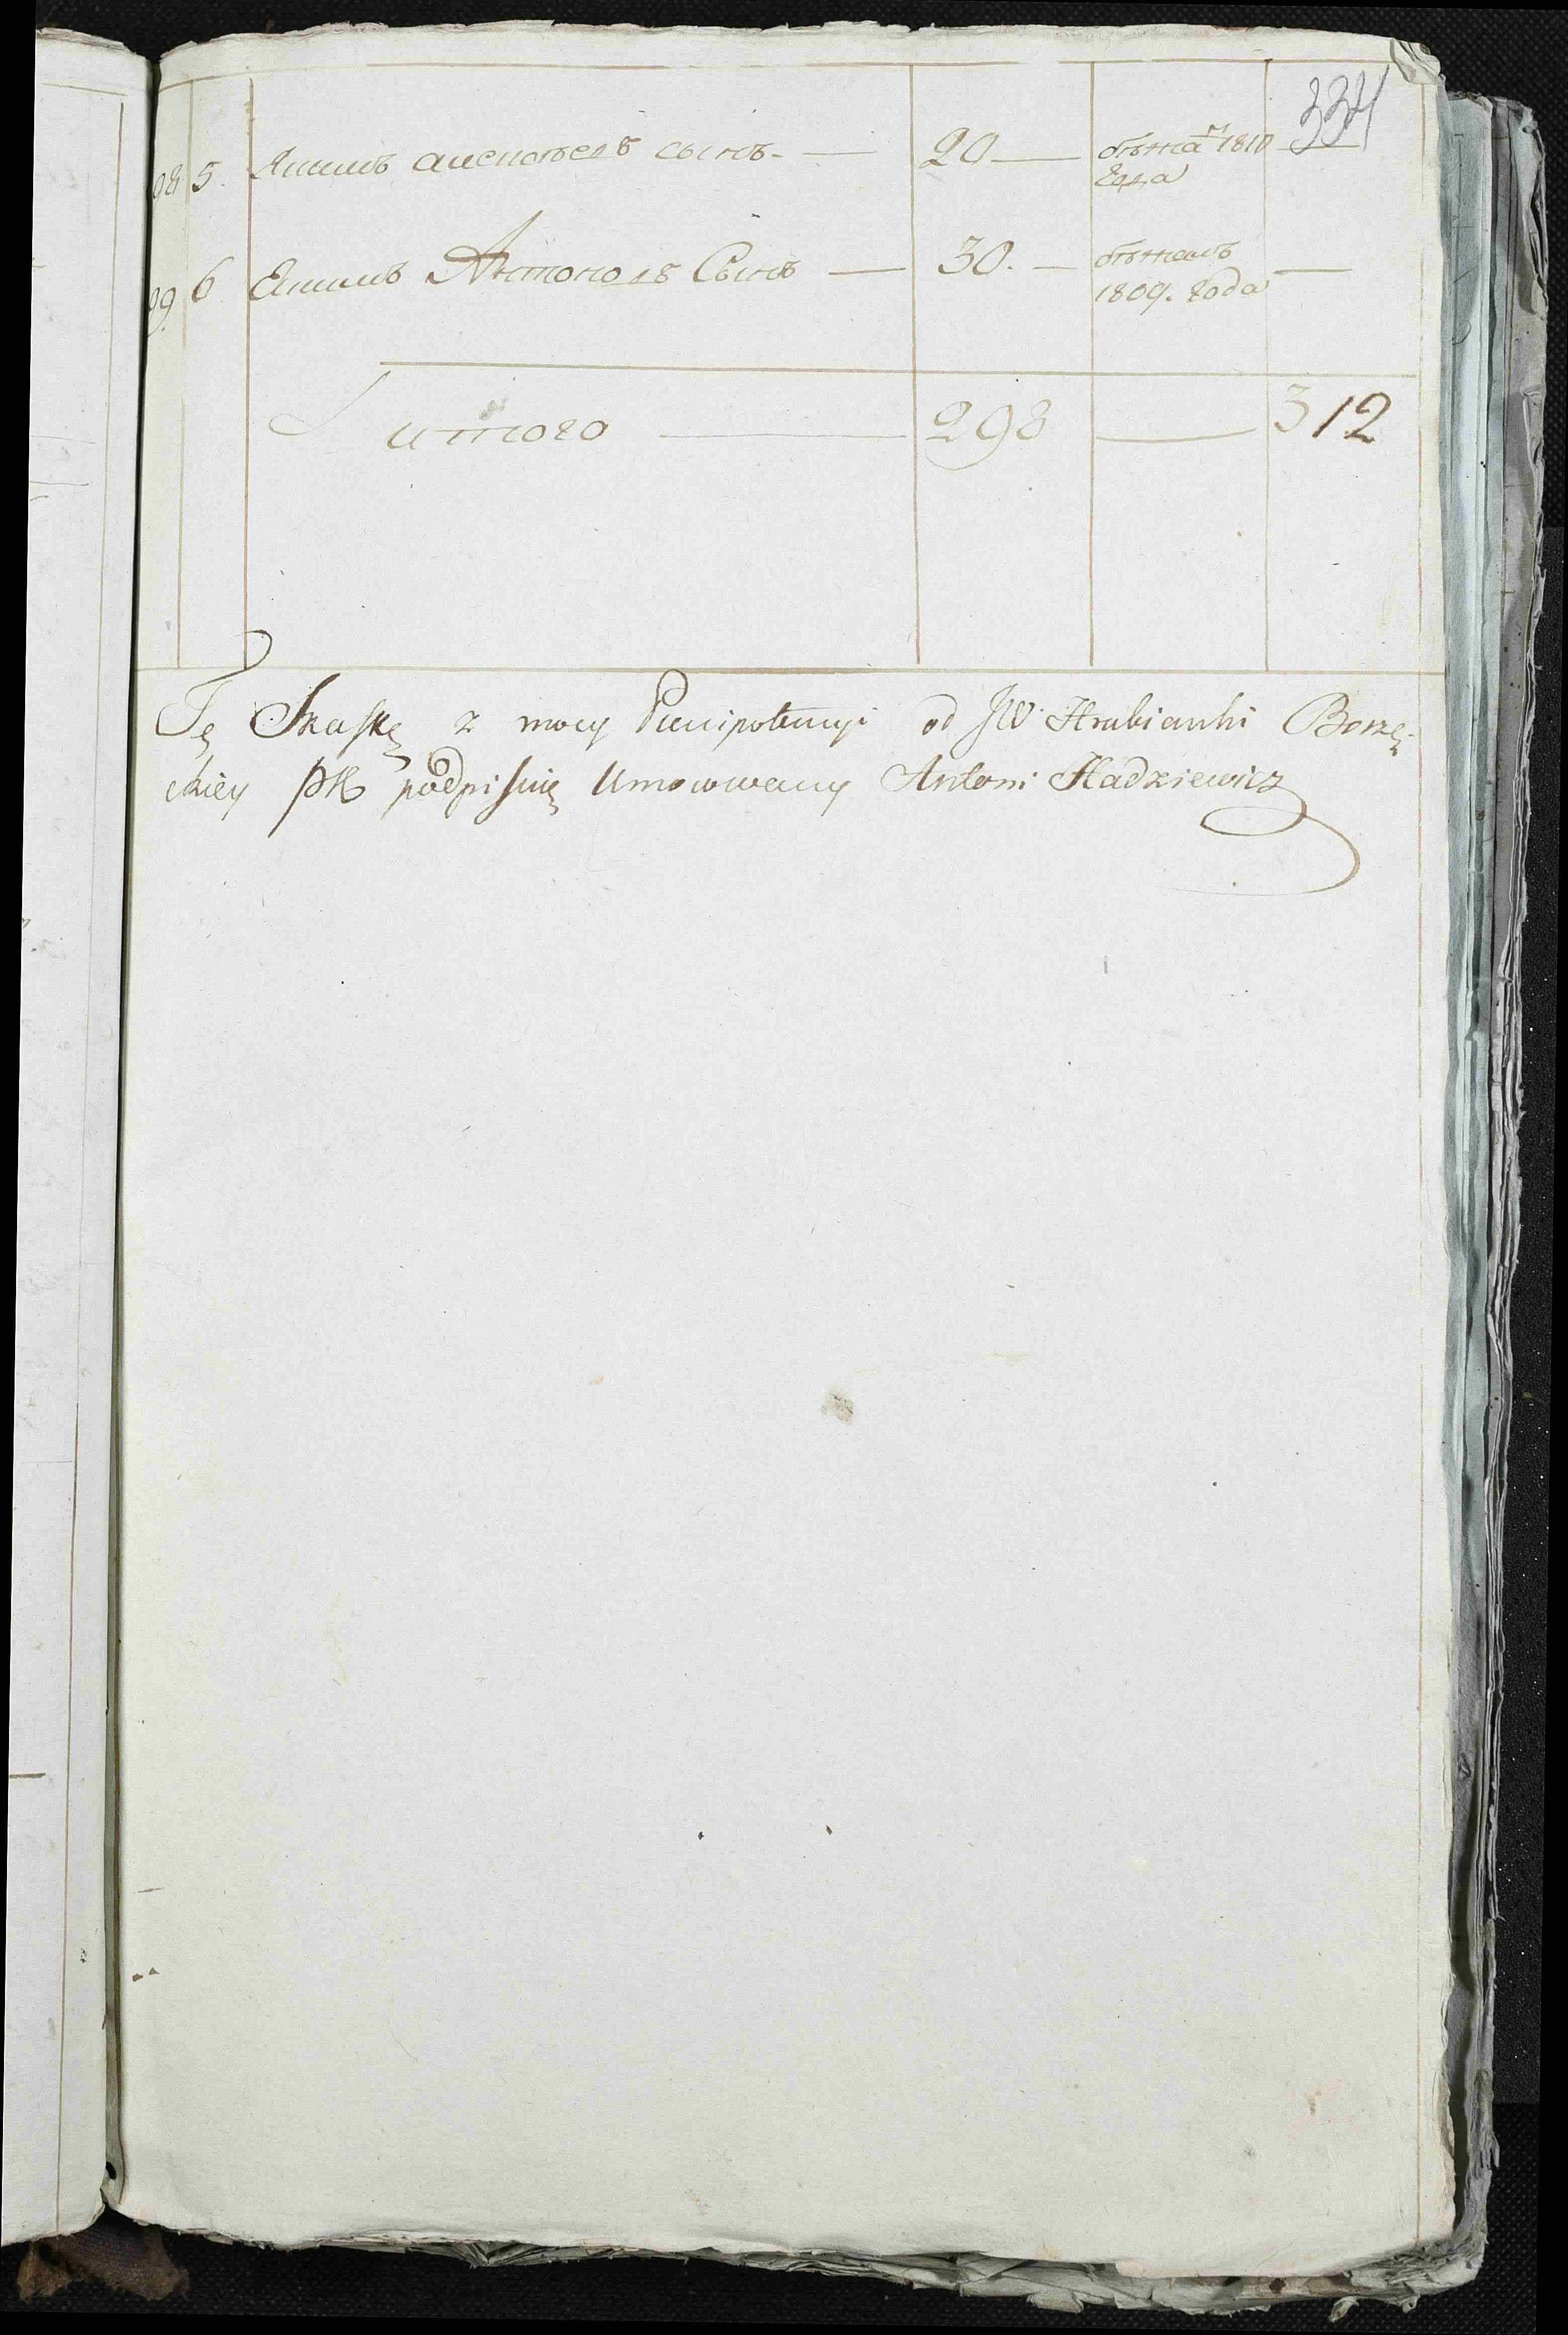 334
98 5. Якимъ Алексѣевъ сынъ. — 20 — бѣжалъ 1810 —
года
99 6 Екимъ Антоновъ Сынъ — 30. — бѣжалъ —
1809. года
итого — 298 — 312
Tę Skaskę z mocy Plenipotencyi od JW. Hrabianki Borzę-
ckiey podpisuię Umocowany Antoni Hadziewicz